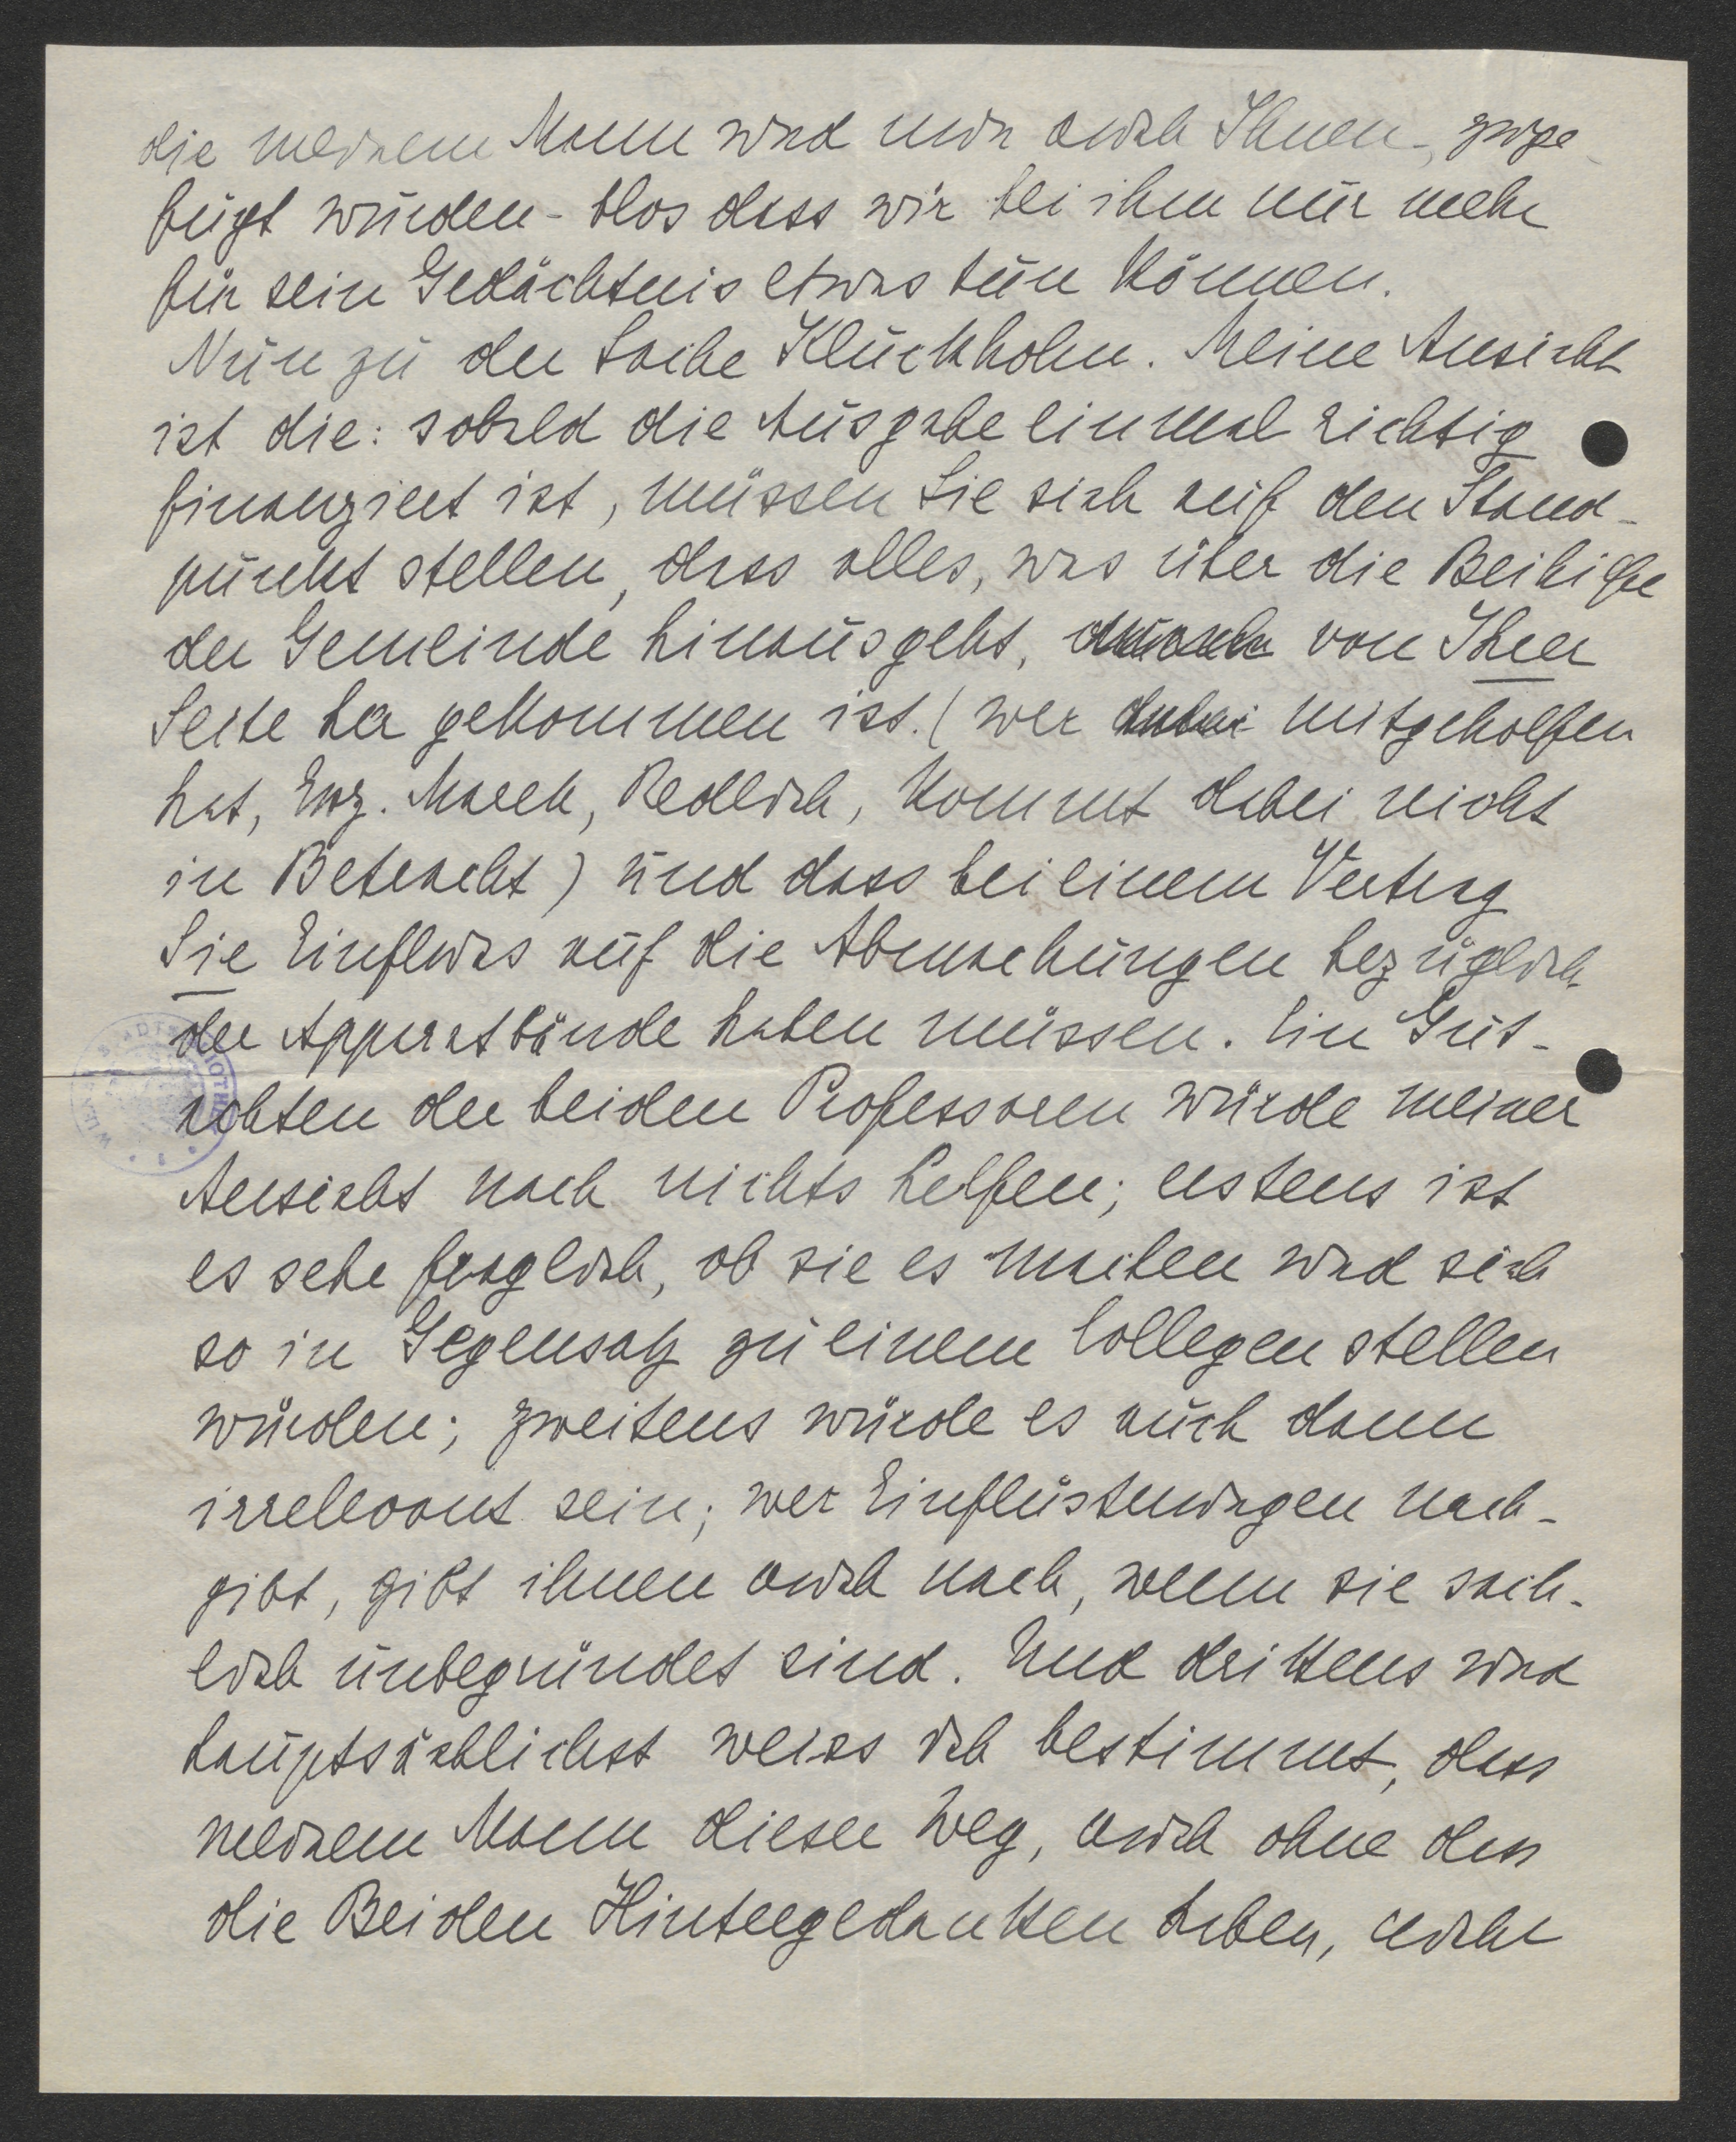 die meinem Mann und nun auch Ihnen -, zuge-
fügt wurden - blos dass wir bei ihm nur mehr
für sein Gedächtnis etwas tun können.
Nun zu der Sache Kluckhohn. Meine Ansicht
ist die: sobald die Ausgabe einmal richtig
finanziert ist, müssen Sie sich auf den Stand-
punkt stellen, dass alles, was über die Beihilfe
der Gemeinde hinausgeht, von Ihrer
Seite her gekommen ist. (wer dabei mitgeholfen
hat, March, Redlich, kommt dabei nicht
in Betracht) und dass bei einem Vertrag
Sie Einfluss auf die Abmachungen bezüglich
der Apparatbände haben müssen. Ein Gut-
achten der beiden Professoren würde meiner
Ansicht nach nichts helfen; erstens ist
es sehr fraglich, ob sie es machen und sich
so in Gegensatz zu einem Collegen stellen
würden; zweitens würde es auch dann
irrelevant sein; wer Einflüsterungen nach-
gibt, gibt ihnen auch nach, wenn sie sach-
lich unbegründet sind. Und drittens und
hauptsächlichst weiss ich bestimmt, dass
meinem Mann dieser Weg, auch ohne dass
die Beiden Hintergedanken haben, nicht